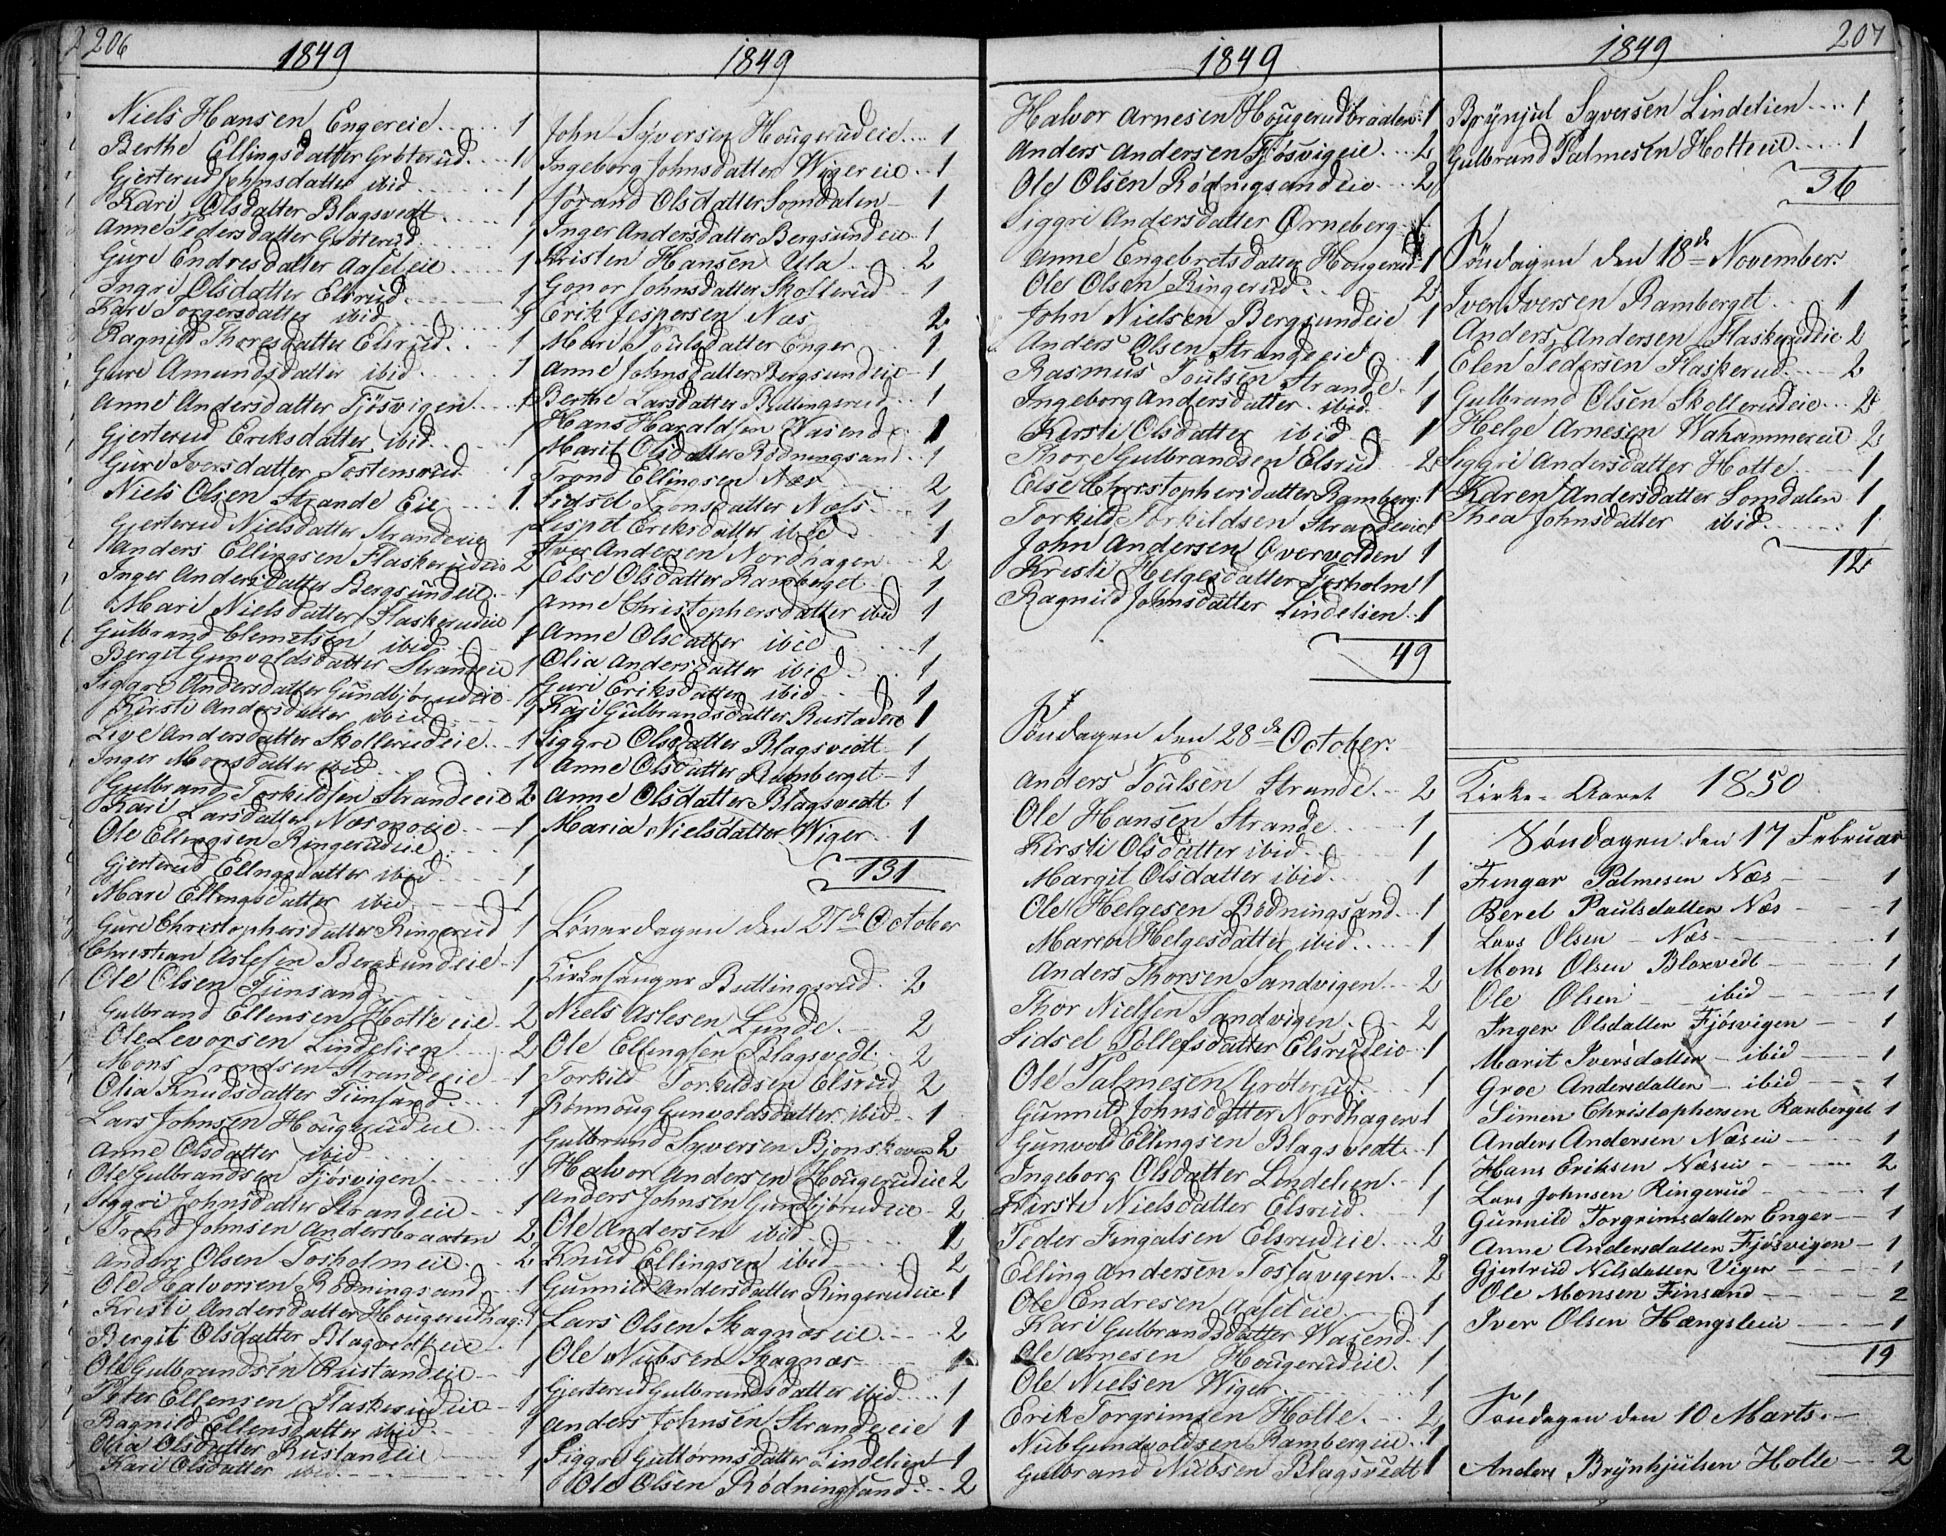 206
1849
Niels Hansen Engereie 1
Berthe Ellingsdatter Grøterud 1
Gjerterud Johnsdatter ibid 1
Kari Olsdatter Blagsvedt 1
Anne Pedersdatter Grøterud 1
Guri Endresdatter Aaseteie 1
Ingri Olsdatter Elsrud 1
Kari Torgersdatter ibid 1
Ragnild Thoresdatter Elsrud 1
Guri Amundsdatter ibid 1
Anne Andersdatter Fjösvigen 1
Gjerterud Eriksdatter ibid 1
Guri Iversdatter Tostensrud 1
Niels Olsen Strande Eie 1
Gjerterud Nielsdatter Strandeeie 1
Anders Ellingsen Flaskerudeie 2
Inger Andersdatter Bergsundeie 1
Mari Nielsdatter Flaskerudeie 1
Gulbrand Clemetsen ibid 1
Bergit Gunvoldsdatter Strandeie 1
Siggri Andersdatter Gundbjørudeie 1
Kirsti Andersdatter ibid 1
Live Andersdatter Skollerudeie 1
Inger Monsdatter ibid 1
Gulbrand Torkildsen Strandeeie 2
Kari Larsdatter Næsmoeie 1
Ole Ellingsen Ringerudeie 1
Gjerterud Ellingsdatter ibid 1
Mari Ellingsdatter ibid 1
Guri Christophersdatter Ringerud 1
Christian Aslesen Bergsundeie 1
Ole Olsen Finsand 1
Gulbrand Ellensen Holteeie 2
Ole Levorsen Lindelien 2
Mons Trondsen Strandeeie 1
Olia Knudsdatter Finsand 1
Lars Johnsen Hougerudeie 1
Anne Olsdatter ibid 1
Ole Gulbrandsen Fjösvigen 1
Siggri Johnsdatter Strandeie 1
Trond Johnsen Andersbraaten 2
Anders Olsen Tosholmeie 2
Ole Halvorsen Rødningsand 1
Kristi Andersdatter Hougerudhag: 1
Bergit Olsdatter Blagsvedteie 1
Ole Gulbrandsen Rustandeie 1
Peter Ellensen Flaskerudeie 1
Ragnild Ellensdatter ibid 1
Olia Olsdatter Rustandeie 1
Kari Olsdatter ibid 1
1849
John Syversen Hougerudeie 1
Ingeborg Johnsdatter Wigereie 1
Jørand Olsdatter Somdalen 1
Inger Andersdatter Bergsundeie 1
Kristen Hansen Ula 2
Gonor Johnsdatter Skollerud 1
Erik Jespersen Næs 2
Mari Poulsdatter Enger 1
Anne Johnsdatter Bergsundeie 1
Berthe Larsdatter Buttingsrud 1
Hans Haraldsen Wasende 1
Marit Olsdatter Rødningsand 1
Trond Ellingsen Næs 2
Sidsel Tronsdatter Næss 1
Lespet Eriksdatter ibid 1
Iver Andersen Nordhagen 2
Else Olsdatter Ramberget 1
Anne Christophersdatter ibid 1
Anne Olsdatter ibid 1
Olia Andersdatter ibid 1
Guri Eriksdatter ibid 1
Kari Gulbrandsdatter Rustadeie 1
Siggri Olsdatter Blagsvedt 1
Anne Olsdatter Ramberget 1
Anne Olsdatter Blagsvedt 1
Maria Nielsdatter Wiger 1
131
Løverdagen den 27de October
Kirkesanger Buttingsrud 2
Niels Aslesen Lunde 2
Ole Ellingsen Blagsvedt 2
Torkild Torkildsen Elsrud 2
Rønnoug Gunvoldsdatter ibid 1
Gulbrand Syversen Bjonskoven 2
Halvor Andersen Hougerudeie 2
Anders Johnsen Gundbjørudeie 2
Ole Andersen ibid 2
Knud Ellingsen ibid 2
Gunnild Andersdatter Ringerudeie 1
Lars Olsen Skagnæseie 2
Ole Nubsen Skagnæs 1
Gjerterud Gulbrandsdatter ibid 1
Anders Johnsen Strandeeie 1
Siggri Guttormsdatter Lindelien 1
Ole Olsen Rødningsand 2
1849
Halvor Arnesen Hougerudbraaten 1
Anders Andersen Fjøsvigeie 2
Ole Olsen Rødnigsandeie 2
Siggri Andersdatter Ørneberg 1
Anne Engebretsdatter Hougerud 1
Ole Olsen Ringerud 2
John Nielsen Bergsundeie 1
Anders Olsen Strandeeie 1
Rasmus Poulsen Strande 1
Ingeborg Andersdatter ibid 1
Kirsti Olsdatter ibid 1
Thore Gulbrandsen Elsrud 2
Else Christophersdatter Ramberg: 1
Torkild Torkildsen Strandeeie 1
John Andersen Overvolden 1
Kristi Helgesdatter Tosholm 1
Ragnild Johnsdatter Lindelien 1
49
Søndagen den 28de October.
Anders Poulsen Strande 2
Ole Hansen Strande 1
Kirsti Olsdatter ibid 1
Margit Olsdatter ibid 1
Ole Helgesen Rødningsand 1
Maren Helgesdatter ibid 1
Anders Thorsen Sandvigen 2
Thor Nielsen Sandvigen 2
Sidsel Tollefsdatter Elsrudeie 1
Ole Palmesen Grøterud 1
Gunnild Johnsdatter Nordhagen 1
Gunvold Ellingsen Blagsvedt 1
Ingeborg Olsdatter Lindelien 1
Kirsti Nielsdatter Elsrud 1
Peder Fingalsen Elsrudeie 2
Elling Andersen Tossavigen 2
Ole Endresen Aaseteie 1
Kari Gulbrandsdatter Wasend 1
Ole Arnesen Hougerudeie 1
Ole Nielsen Wiger 1
Erik Torgrimsen Holte 2
Nub Gundvoldsen Rambergeie 1
Gulbrand Nubsen Blagsvedt 1
207
1849
Brynjul Syversen Lindelien 1
Gulbrand Palmesen Holteeie 1
36
Søndagen den 18de November.
Iver Iversen Ramberget 1
Anders Andersen Flaskerudeie 2
Elen Pedersen Flaskerud 2
Gulbrand Olsen Skollerudeie 2
Helge Arnesen Wahammereie 2
Siggri Andersdatter Holte 1
Karen Andersdatter Somdalen 1
Thea Johnsdatter ibid 1
12
Kirke-Aaret 1850
Søndagen den 17 Februar
Fingar Palmesen Næs 1
Berel Paulsdatter Næs 1
Lars Olsen Næs 1
Mons Olsen Bloxvedt 1
Ole Olsen ibid 1
Inger Olsdatter Fjösvigen 1
Marit Iversdatter ibid 1
Groe Andersdatter ibid 1
Simen Christophersen Ramberget 1
Anders Andersen Næseie 1
Hans Eriksen Næseie 2
Lars Johnsen Ringerud 1
Gunnild Torgrimsdatter Enger 1
Anne Andersdatter Fjösvigen 1
Gjertrud Nilsdatter Viger 1
Ole Monsen Finsand 2
Iver Olsen Hængsleeie 1
19
Søndagen den 10 Marts.
Anders Brynhjulsen Holte 2